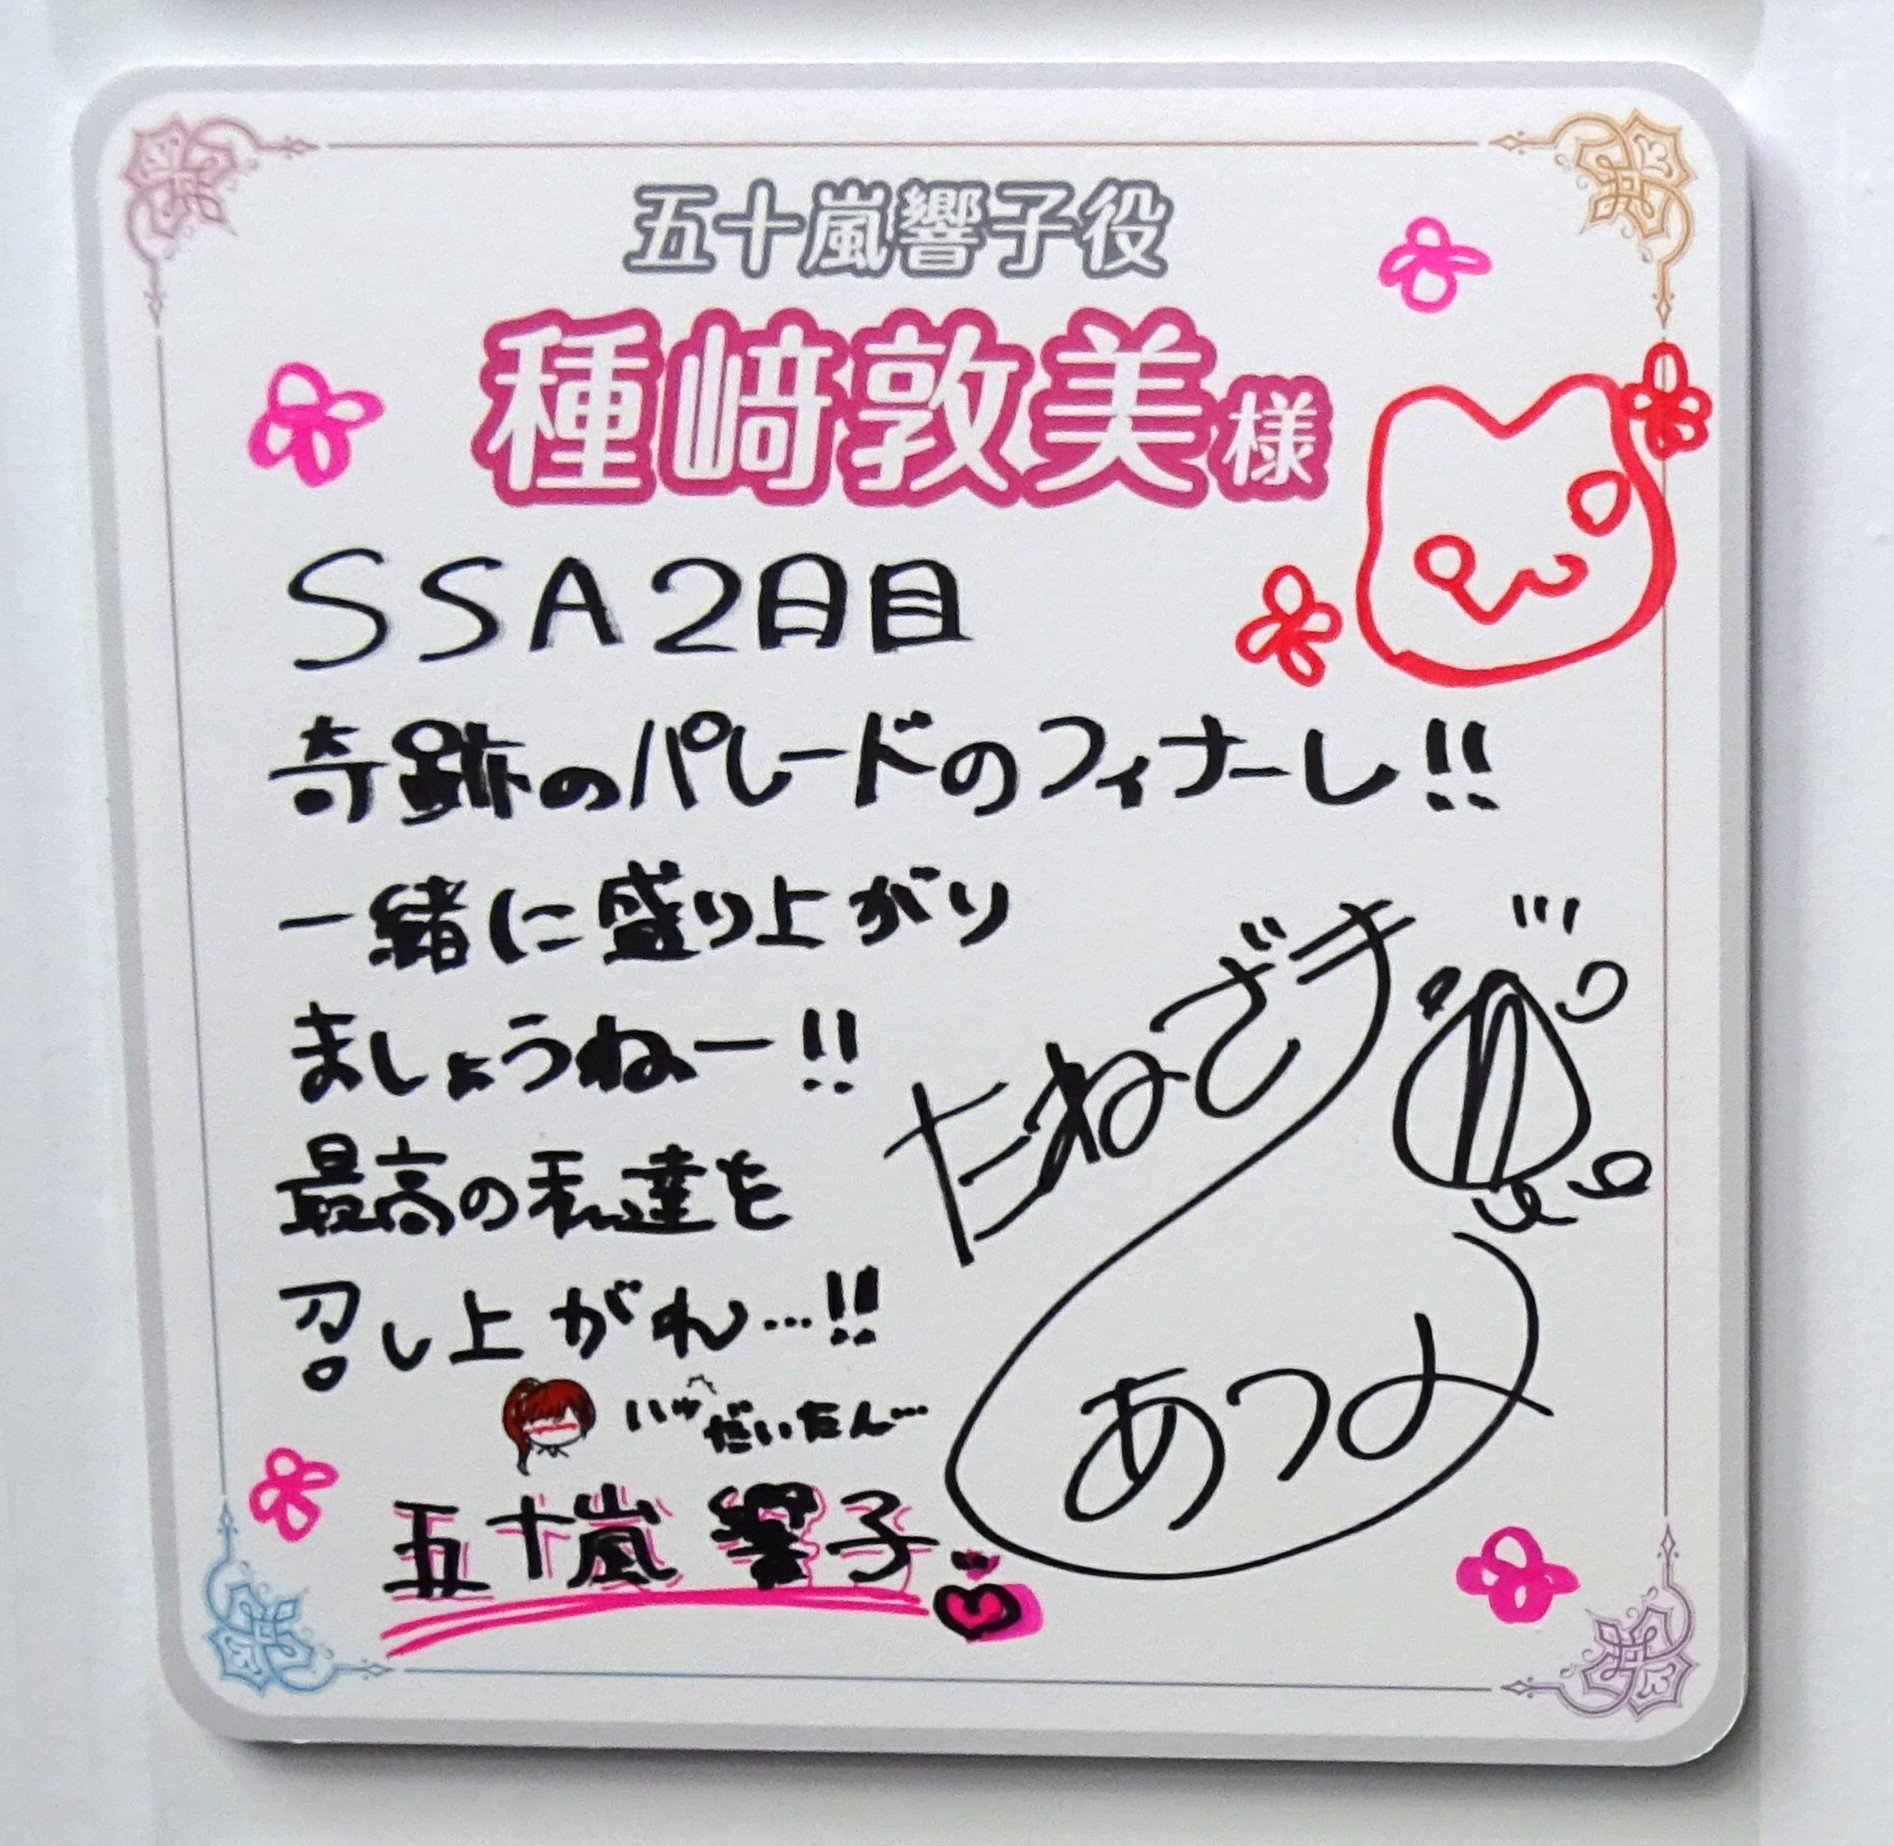 五十嵐響子役
種﨑敦美様
SSA2日目
奇跡のパレードのフィナーレ!!
一緒に盛り上がり
ましょうねー!!
最高の私達を
召し上がれ…!!
ハッ だいたん…
五十嵐 響子
たねざき
あつみ